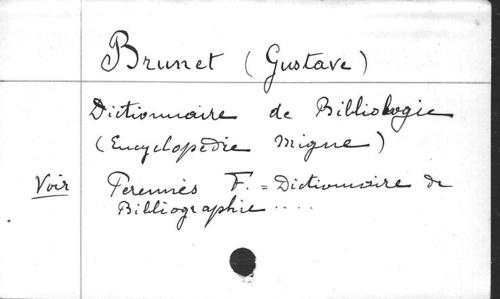 Brunet (Gustave)
Dictionnaire de Bibliologie
(Encyclopédie Migne)
Voir Perennès F. = Dictionnaire de
Bibliographie ....